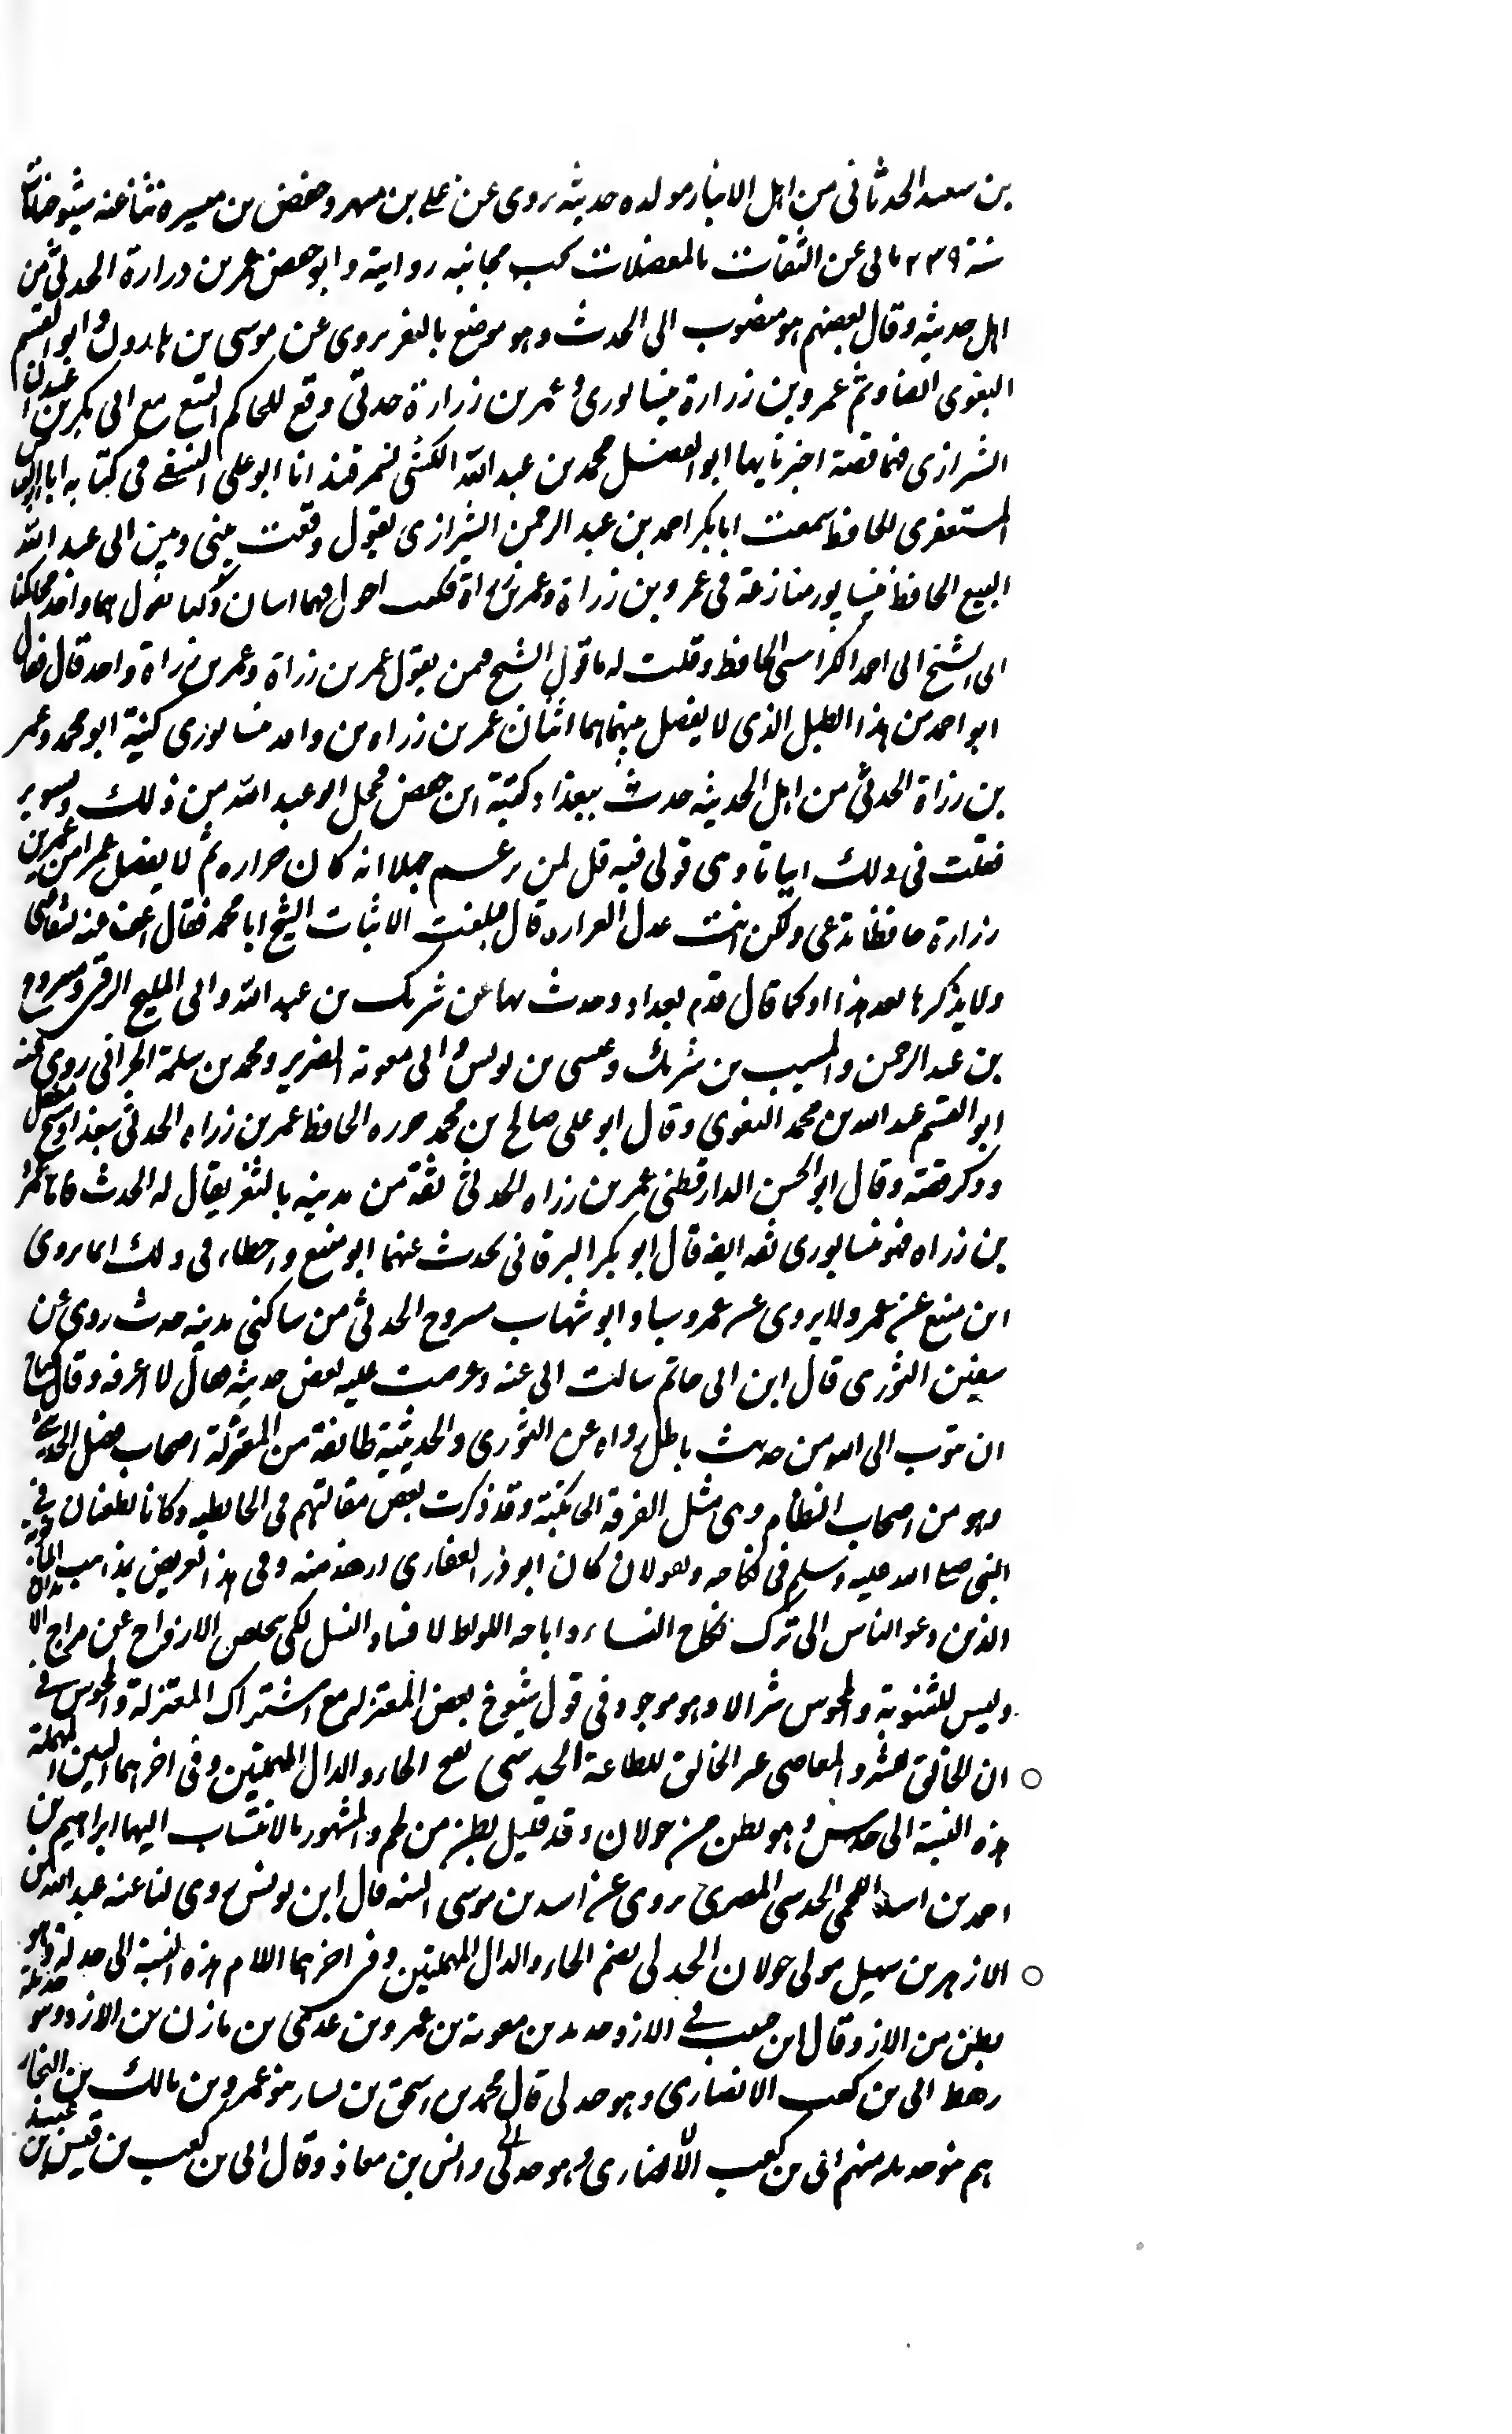 بن سعيد الحدثاني من اهل الانبار مولده حديثه يروى عن علي بن مسهر وحفص بن ميسرة ثنا عنه شيوخنا مات
سنة ٢٣٩ ياتى عن الثقات بالمعضلات يجب مجانبه رواية وابو حفص عمر بن درارة الحدثى من
اهل حديثه وقال بعضهم هو منسوب الى الحدث وهو موضع بالثغر يروى عن موسى بن هارون وابو القسم
البغوى ايضا وثم عمرو بن زرارة نيسابورى وعمر بن زرارة حدثى وقع للحاكم البيع مع ابى بكر بن عبدان
الشرازى فيها قصة اخبرنا بها ابو الفضل محمد بن عبد الله الكشى بسمرقند انا ابو على النسفى فى كتابه ابا العباس
المستغفرى الحافظ سمعت ابا بكر احمد بن عبد الرحمن الشيرازى يقول وقعت بينى وبين ابى عبد الله
البيع الحافظ نيسابور منازعة فى عمرو بن زراة وعمر بن زراة فكنت اقول هما اسان وكان يقول هما واحد فحاكمنا
الى الشيخ ابى احمد الكرابيسى الحافظ وقلت له ما قول الشيخ فيمن يقول عمر بن زراة وعمر بن زراة واحد قال فقال
ابو احمد من هذا الطبل الذى لا يفصل بينهما هما اثنان عمر بن زراه من واحد نسابورى كنية ابو محمد وعمر
بن رزاة الحدثى من اهل الحديثه حدث ببغداد كنية ابن حفص فخجل ابو عبد الله من ذلك وتشوير
فقلت فى ذلك ابياتا وهى قولى فيه قل لمن زعم جهلا انه كان حراره ثم لا يفصل عمرا من عمر بن
زرارة حافظا تدعى ولكن انت عدل الغراره قال فبلغت الابيات الشيخ ابا محمد فقال اعف عنه
ولا يذكرها بعد هذا او كما قال قدم بغداد وحدث بها عن شريك بن عبد الله وابى المليح الرقى ومسروح
بن عبد الرحمن والمسيب بن شريك وعيسى بن يونس وابى معوية الضرير ومحمد بن سلمة الحرانى روى عنه
ابو القسم عبد الله بن محمد البغوى وقال ابو على صالح بن محمد جزره الحافظ عمر بن زراه الحدثى ببغداد شيخ مغفل
وذكر قصته وقال ابو الحسن الدارقطنى عمر بن زراه الحدثى ثقة من مدينه بالثغر يقال له الحدث فاما عمرو
بن زراه فهو نيسابورى ثقه ايضا قال ابو بكر البرقانى يحدث عنهما ابو منيع واخطاء فى ذلك انما يروى
ابن منيع عن عمر ولا يروى عن عمرو شيئا وابو شهاب مسروح الحدثى من ساكنى مدينه حدث روى عن
سفين الثورى قال ابن ابى حاتم سالت ابى عنه وعرضت عليه بعض حديثه فقال لا اعرفه وقال
ان يتوب الى الله من حديث باطل رواه عن الثورى والحدثية طائفة من المعتزلة اصحاب فضل الحدثى
وهو من اصحاب النظام وهى مثل الفرقة الحابطية وقد ذكرت بعض مقالتهم فى الحابطيه وكانا يطعنان فى
النبى صلى الله عليه وسلم فى نكاحه ويقولان كان ابو ذر الغفارى ازهد منه وفى هذا تعريض بمذاهب المانويه
الذين دعوا الناس الى ترك نكاح النساء واباحه اللواط لافساد النسل لكى يتخلص الارواح عن مزاج الابدان
وليس للثنوية والمجوس شر الا وهو موجود فى قول شيوخ بعض المعتزلة مع اشتراك المعتزلة والمجوس فى
ان الخالق للشر والمعاصى غير الخالق للطاعة الحدسى بفتح الحاء والدال المهملتين وفى اخرهما السين المهملة
هذه النسبة الى حدس وهو بطن من خولان وقد قيل بطن من لخم والمشهور بالانتساب اليها ابراهيم بن
احمد بن اسد اللخمى الحدسى المصرى يروى عن اسد بن موسى السنه قال ابن يونس روى لنا عنه عبد الله بن
الازهر بن سهيل مولى خولان الحدلى بضم الحاء والدال المهملتين وفى اخرهما اللام هذه النسبة الى حديلة وهو
بطن من الازد وقال ابن حبيب فى الازد حديلة بن معوية بن عمرو بن عدى بن مازن بن الازد وهو
رهط ابى بن كعب الانصارى وهو حدلى قال محمد بن اسحق بن يسار بنو عمرو بن مالك بن النجار
هم بنو حديله منهم ابى بن كعب الانصارى وهو حدلى وانس بن معاذ وقال ابى بن كعب بن قيس بن عبيد